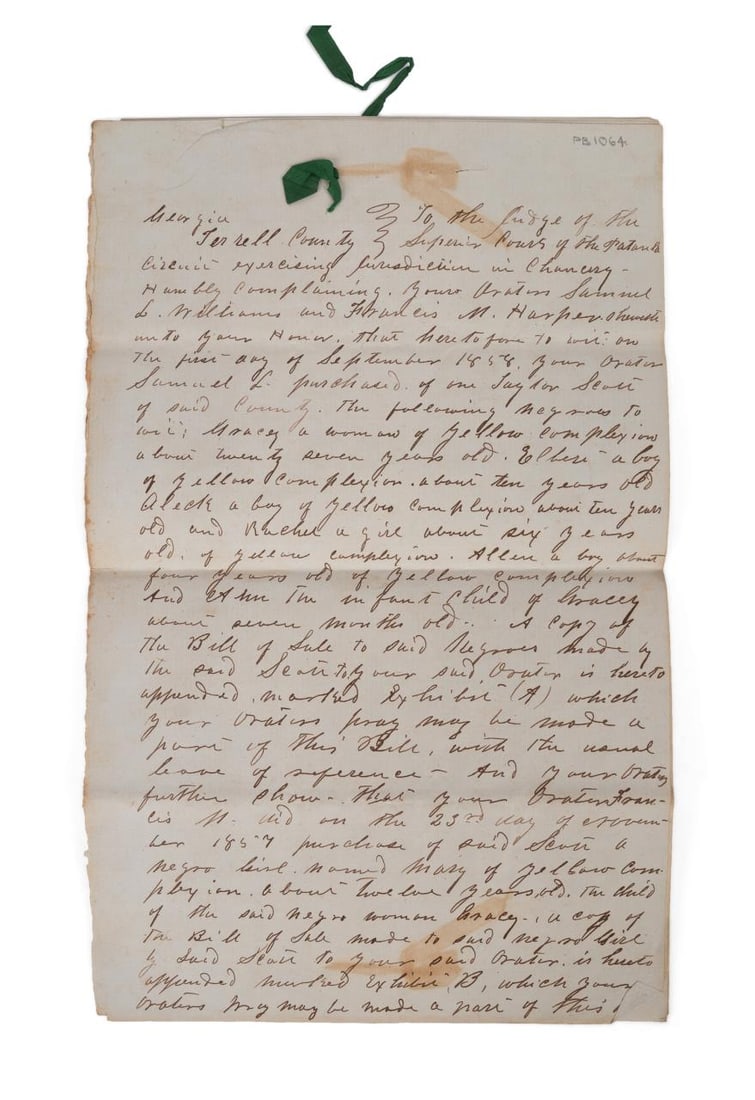 PB1064
Georgia } To the Judge of the
Terrell County } Superior Court of the Pataula
Circuit exercising Jurisdiction in Chancery -
Humbly Complaining. Your Orators Samuel
L. Williams and Francis M. Harper sheweth
unto your Honor. that heretofore to wit: on
the first day of September 1858, your Orator
Samuel L. purchased. of one Taylor Scott
of said County. the following negroes to
wit; Gracey a woman of yellow complexion
about twenty seven years old. Elbert a boy
of yellow complexion. about ten years old
Aleck a boy of yellow complexion about ten years
old and Rachel a girl about six years
old. of yellow complexion. Allen a boy about
four years old of yellow complexion
And Ann the infant child of Gracey
about seven months old. A copy of
the Bill of Sale to said Negroes made by
the said Scott to your said Orator is hereto
appended. marked Exhibit (A) which
your Orators pray may be made a
part of this Bill, with the usual
leave of reference - And your Orators
further show - that your Orator Fran-
cis M. did on the 23rd day of Novem-
ber 1857 purchase of said Scott a
negro Girl. named Mary of yellow com-
plexion. about twelve years old. the child
of the said negro woman Gracey -, a copy of
the Bill of Sale made to said negro Girl
by said Scott to your said Orator. is hereto
appended marked Exhibit B, which your
Orators pray may be made a part of this